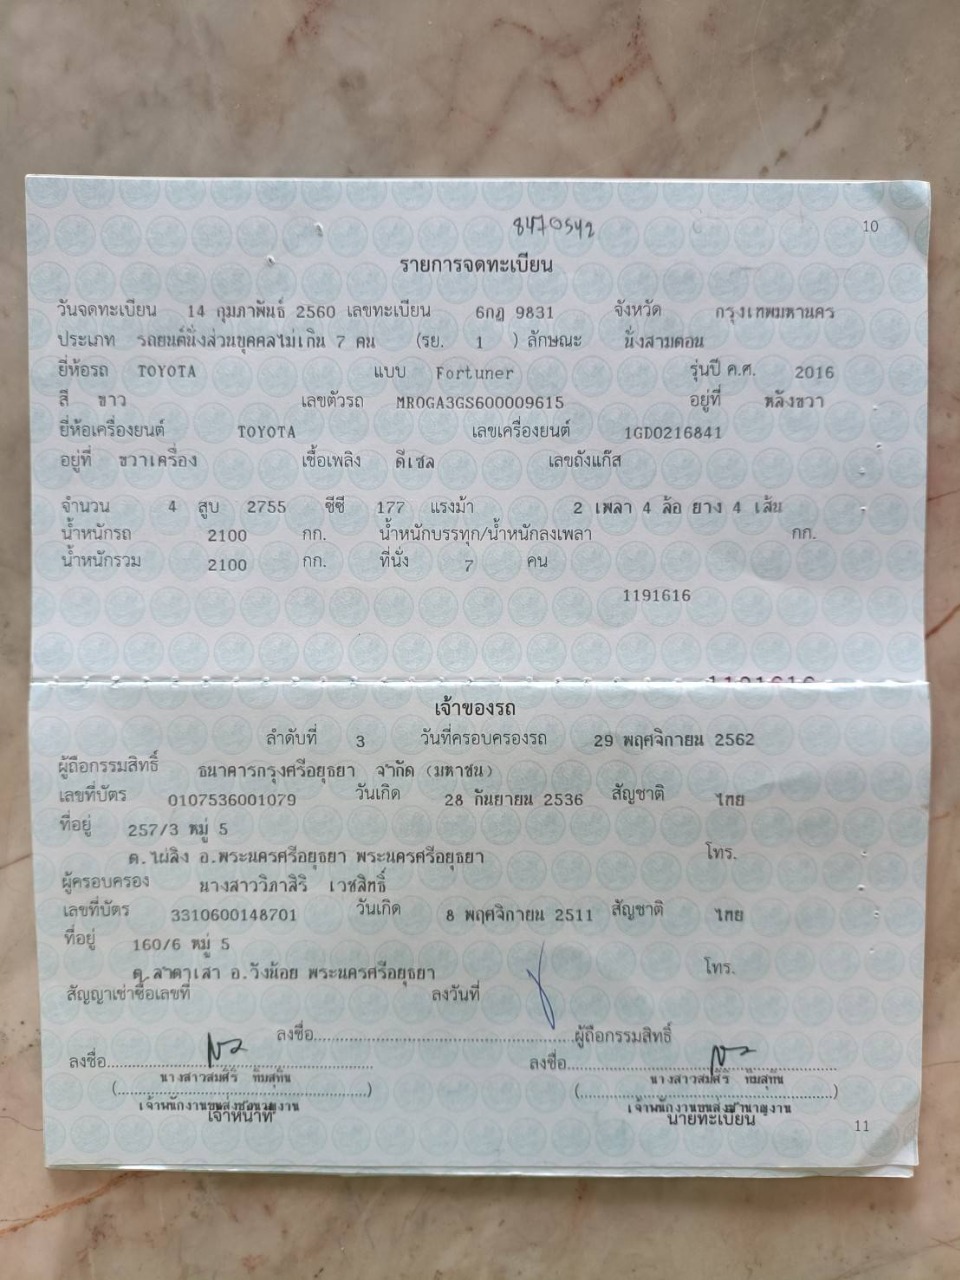 8470542
10
รายการจดทะเบียน
วันจดทะเบียน 14 กุมภาพันธ์ 2560 เลขทะเบียน 6กฎ 9831 จังหวัด กรุงเทพมหานคร
ประเภท รถยนต์นั่งส่วนบุคคลไม่เกิน 7 คน (รย. 1 ) ลักษณะ นั่งสามตอน
ยี่ห้อรถ TOYOTA แบบ Fortuner รุ่นปี ค.ศ. 2016
สี ขาว เลขตัวรถ MR0GA3GS600009615 อยู่ที่ หลังขวา
ยี่ห้อเครื่องยนต์ TOYOTA เลขเครื่องยนต์ 1GD0216841
อยู่ที่ ขวาเครื่อง เชื้อเพลิง ดีเซล เลขถังแก๊ส
จำนวน 4 สูบ 2755 ซีซี 177 แรงม้า 2 เพลา 4 ล้อ ยาง 4 เส้น
น้ำหนักรถ 2100 กก. น้ำหนักบรรทุก/น้ำหนักลงเพลา กก.
น้ำหนักรวม 2100 กก. ที่นั่ง 7 คน
1191616
เจ้าของรถ
ลำดับที่ 3 วันที่ครอบครองรถ 29 พฤศจิกายน 2562
ผู้ถือกรรมสิทธิ์ ธนาคารกรุงศรีอยุธยา จำกัด (มหาชน)
เลขที่บัตร 0107536001079 วันเกิด 28 กันยายน 2536 สัญชาติ ไทย
ที่อยู่ 257/3 หมู่ 5
ต.ไผ่ลิง อ.พระนครศรีอยุธยา พระนครศรีอยุธยา โทร.
ผู้ครอบครอง นางสาววิภาสิริ เวชสิทธิ์
เลขที่บัตร 3310600148701 วันเกิด 8 พฤศจิกายน 2511 สัญชาติ ไทย
ที่อยู่ 160/6 หมู่ 5
ต.ลำตาเสา อ.วังน้อย พระนครศรีอยุธยา โทร.
สัญญาเช่าซื้อเลขที่ ลงวันที่
ลงชื่อ ผู้ถือกรรมสิทธิ์
ลงชื่อ ลงชื่อ
นางสาวสมศิริ ทิมสุทิน นางสาวสมศิริ ทิมสุทิน
เจ้าพนักงานขนส่งชำนาญงาน เจ้าพนักงานขนส่งชำนาญงาน
เจ้าหน้าที่ นายทะเบียน
11